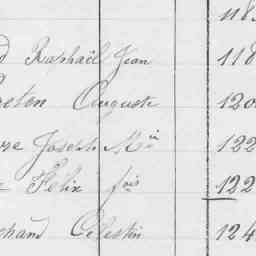 118
d Raphaël Jean 118
reton Auguste 120
re Joseph Min 122
Félix fois 122
chand Célestin 124